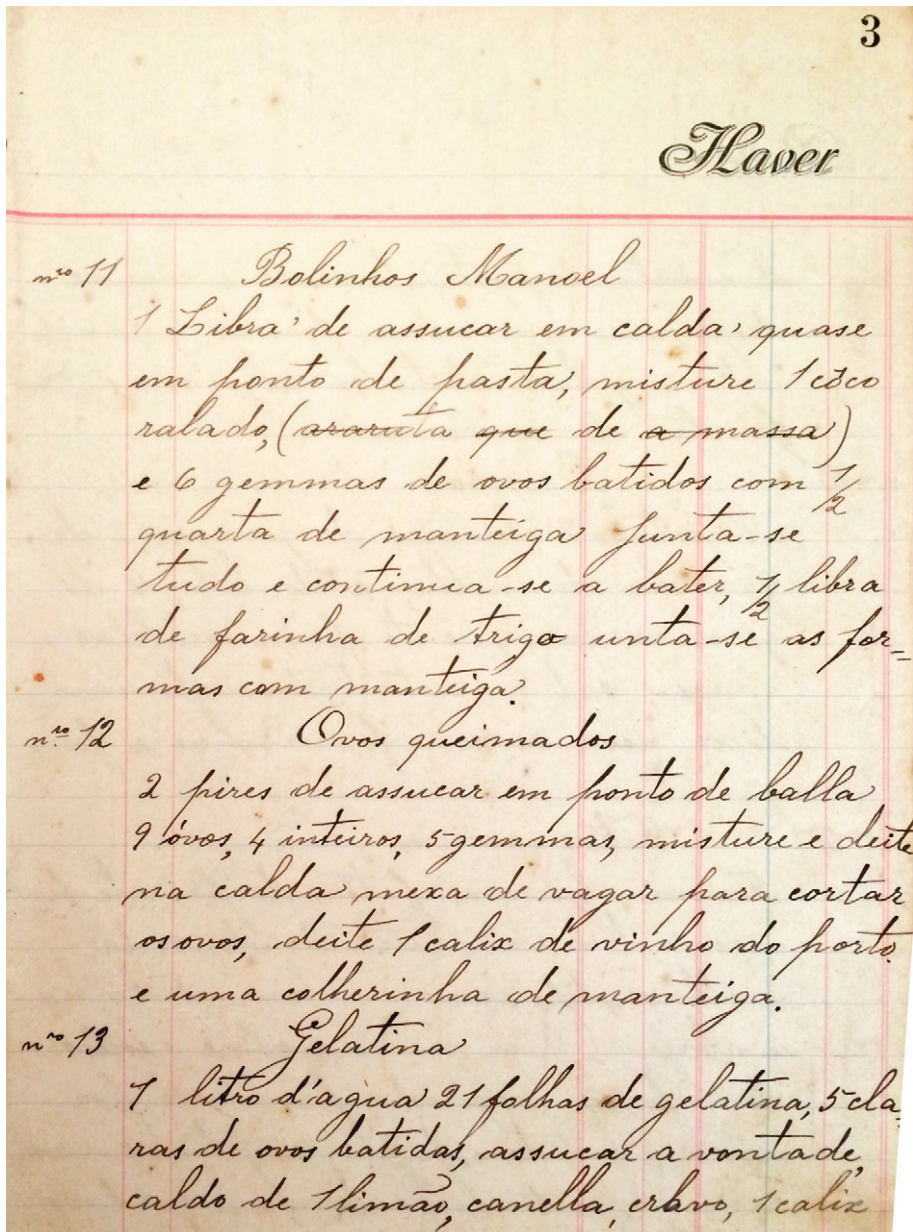 3
Haver
nro 11 Bolinhos Manoel
1 Libra de assucar em calda, quase
em ponto de pasta, misture 1 côco
ralado, (araruta que de a massa)
e 6 gemmas de ovos batidos com 1/2
quarta de manteiga Junta-se
tudo e continua-se a bater, 1/2 libra
de farinha de trigo unta-se as for=
mas com manteiga.
nro 12 Ovos queimados
2 pires de assucar em ponto de balla
9 óvos, 4 inteiros, 5 gemmas, misture e deite
na calda mexa de vagar para cortar
os ovos, deite 1 calix de vinho do porto.
e uma colherinha de manteiga.
nro 13 Gelatina
1 litro d'agua 21 folhas de gelatina, 5 cla-
ras de ovos batidas, assucar a vontade,
caldo de 1 limão, canella, cravo, 1 calix